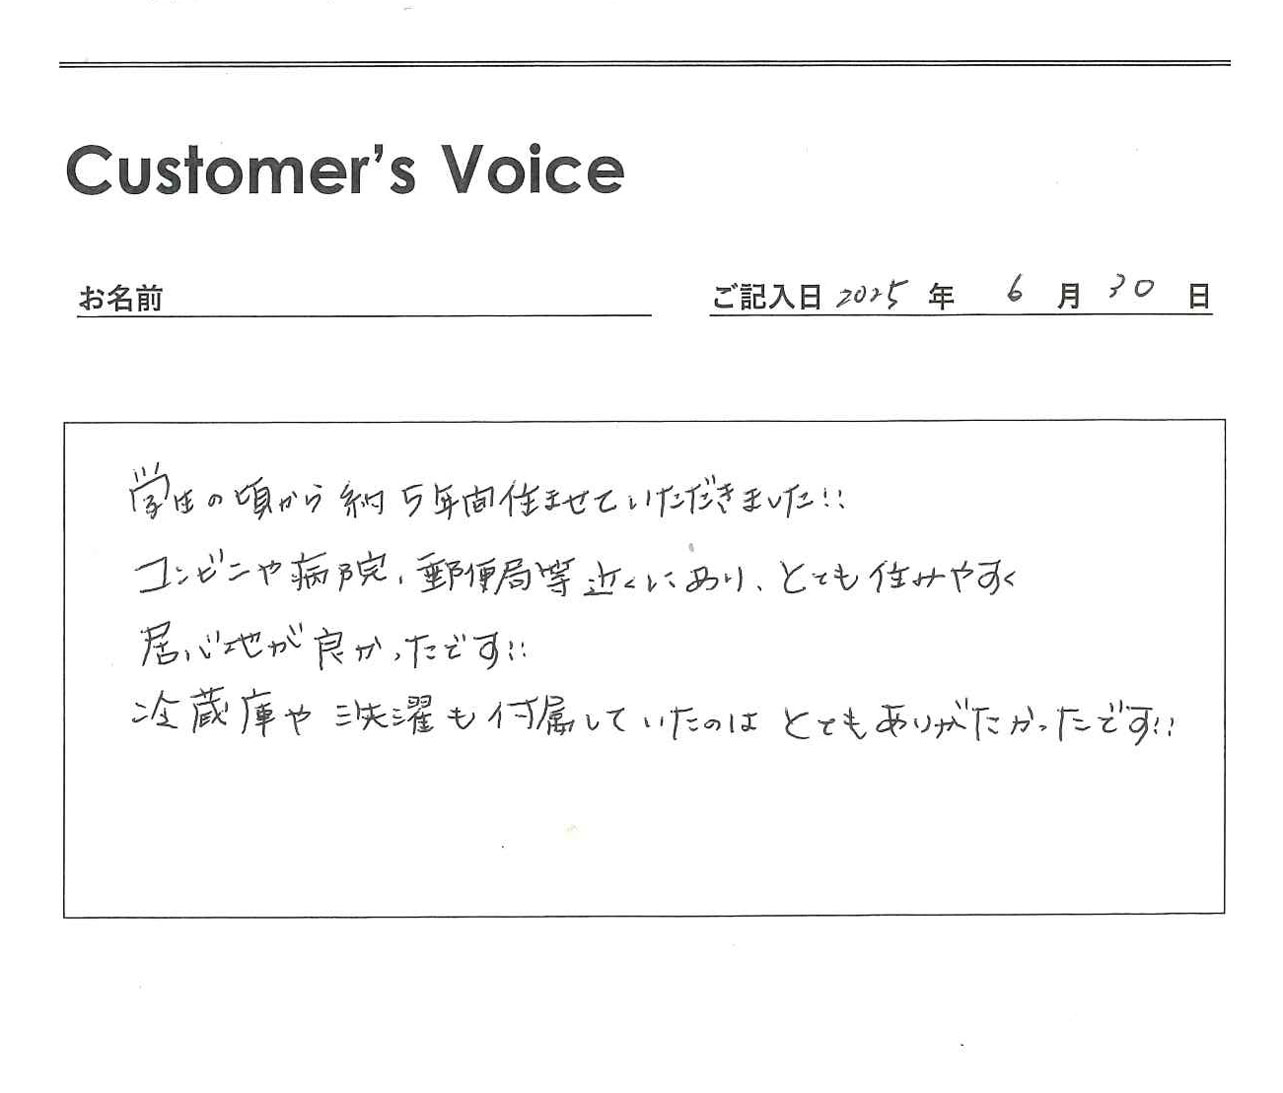 Customer's Voice
お名前
ご記入日 2025 年 6 月 30 日
学生の頃から約5年間住ませていただきました!!
コンビニや病院、郵便局等近くにあり、とても住みやすく
居心地が良かったです!!
冷蔵庫や洗濯も付属していたのは とてもありがたかったです!!